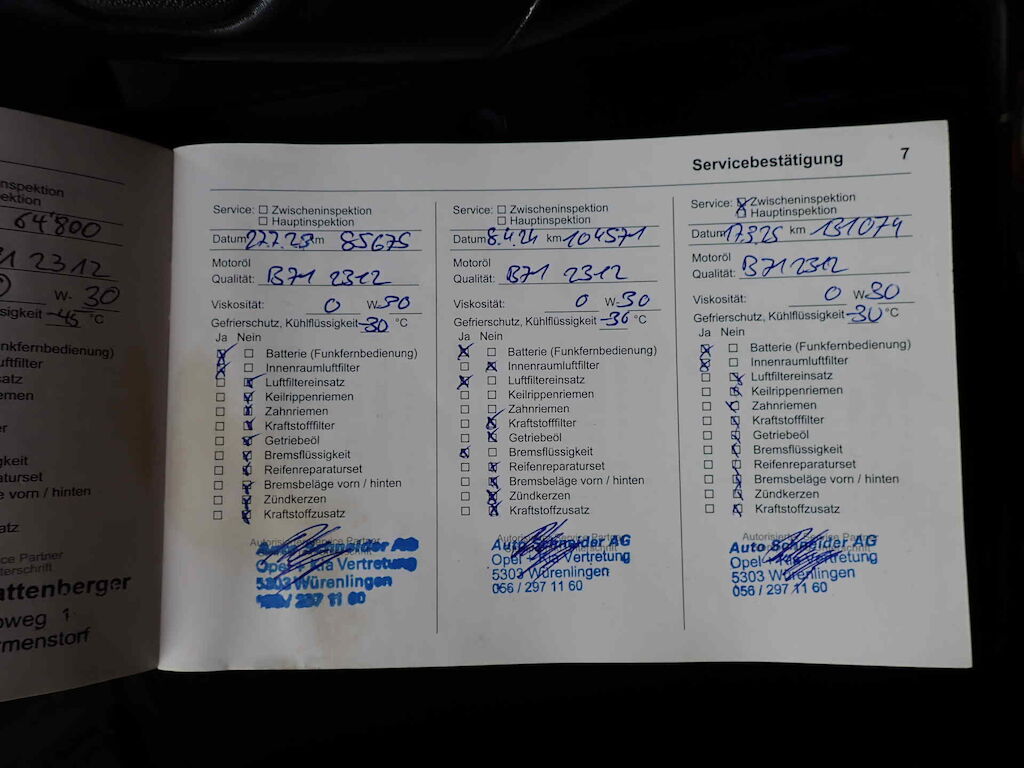 nspektion
ektion
64'800
1 2312
W- 30
ssigkeit -45 °C
nkfernbedienung)
ftfilter
satz
emen
er
gkeit
aturset
e vorn / hinten
atz
ce Partner
terschrift
attenberger
oweg 1
rmenstorf
Servicebestätigung 7
Service: ☐ Zwischeninspektion
☐ Hauptinspektion
Datum 27.7.23 km 85675
Motoröl
Qualität: B71 2312
Viskosität: 0 W-30
Gefrierschutz, Kühlflüssigkeit -30 °C
Ja Nein
☒ ☐ Batterie (Funkfernbedienung)
☒ ☐ Innenraumluftfilter
☐ ☒ Luftfiltereinsatz
☐ ☒ Keilrippenriemen
☐ ☒ Zahnriemen
☐ ☒ Kraftstofffilter
☐ ☒ Getriebeöl
☐ ☒ Bremsflüssigkeit
☐ ☒ Reifenreparaturset
☐ ☒ Bremsbeläge vorn / hinten
☐ ☒ Zündkerzen
☐ ☒ Kraftstoffzusatz
Auto Schneider AG
Opel + Kia Vertretung
5303 Würenlingen
297 11 60
Service: ☐ Zwischeninspektion
☐ Hauptinspektion
Datum 8.4.24 km 104571
Motoröl
Qualität: B71 2312
Viskosität: 0 W-30
Gefrierschutz, Kühlflüssigkeit -36 °C
Ja Nein
☒ ☐ Batterie (Funkfernbedienung)
☐ ☒ Innenraumluftfilter
☒ ☐ Luftfiltereinsatz
☐ ☐ Keilrippenriemen
☐ ☐ Zahnriemen
☐ ☒ Kraftstofffilter
☐ ☒ Getriebeöl
☒ ☐ Bremsflüssigkeit
☐ ☒ Reifenreparaturset
☐ ☒ Bremsbeläge vorn / hinten
☐ ☒ Zündkerzen
☐ ☒ Kraftstoffzusatz
Auto Schneider AG
Opel + Kia Vertretung
5303 Würenlingen
056 / 297 11 60
Service: ☒ Zwischeninspektion
☐ Hauptinspektion
Datum 17.3.25 km 131074
Motoröl
Qualität: B71 2312
Viskosität: 0 W-30
Gefrierschutz, Kühlflüssigkeit -30 °C
Ja Nein
☒ ☐ Batterie (Funkfernbedienung)
☒ ☐ Innenraumluftfilter
☐ ☒ Luftfiltereinsatz
☐ ☒ Keilrippenriemen
☐ ☒ Zahnriemen
☐ ☒ Kraftstofffilter
☐ ☒ Getriebeöl
☐ ☒ Bremsflüssigkeit
☐ ☒ Reifenreparaturset
☐ ☒ Bremsbeläge vorn / hinten
☐ ☒ Zündkerzen
☐ ☒ Kraftstoffzusatz
Auto Schneider AG
Opel + Kia Vertretung
5303 Würenlingen
056 / 297 11 60